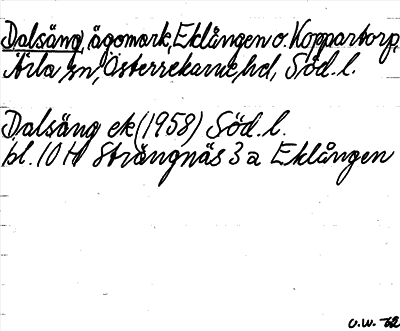 Dalsäng, ägomark, Eklången o. Koppartorp,
Ärla sn, Österrekarne hd, Söd. l.
Dalsäng ek (1958) Söd. l.
bl. 10 H Strängnäs 3 a Eklången
O.W. 62.